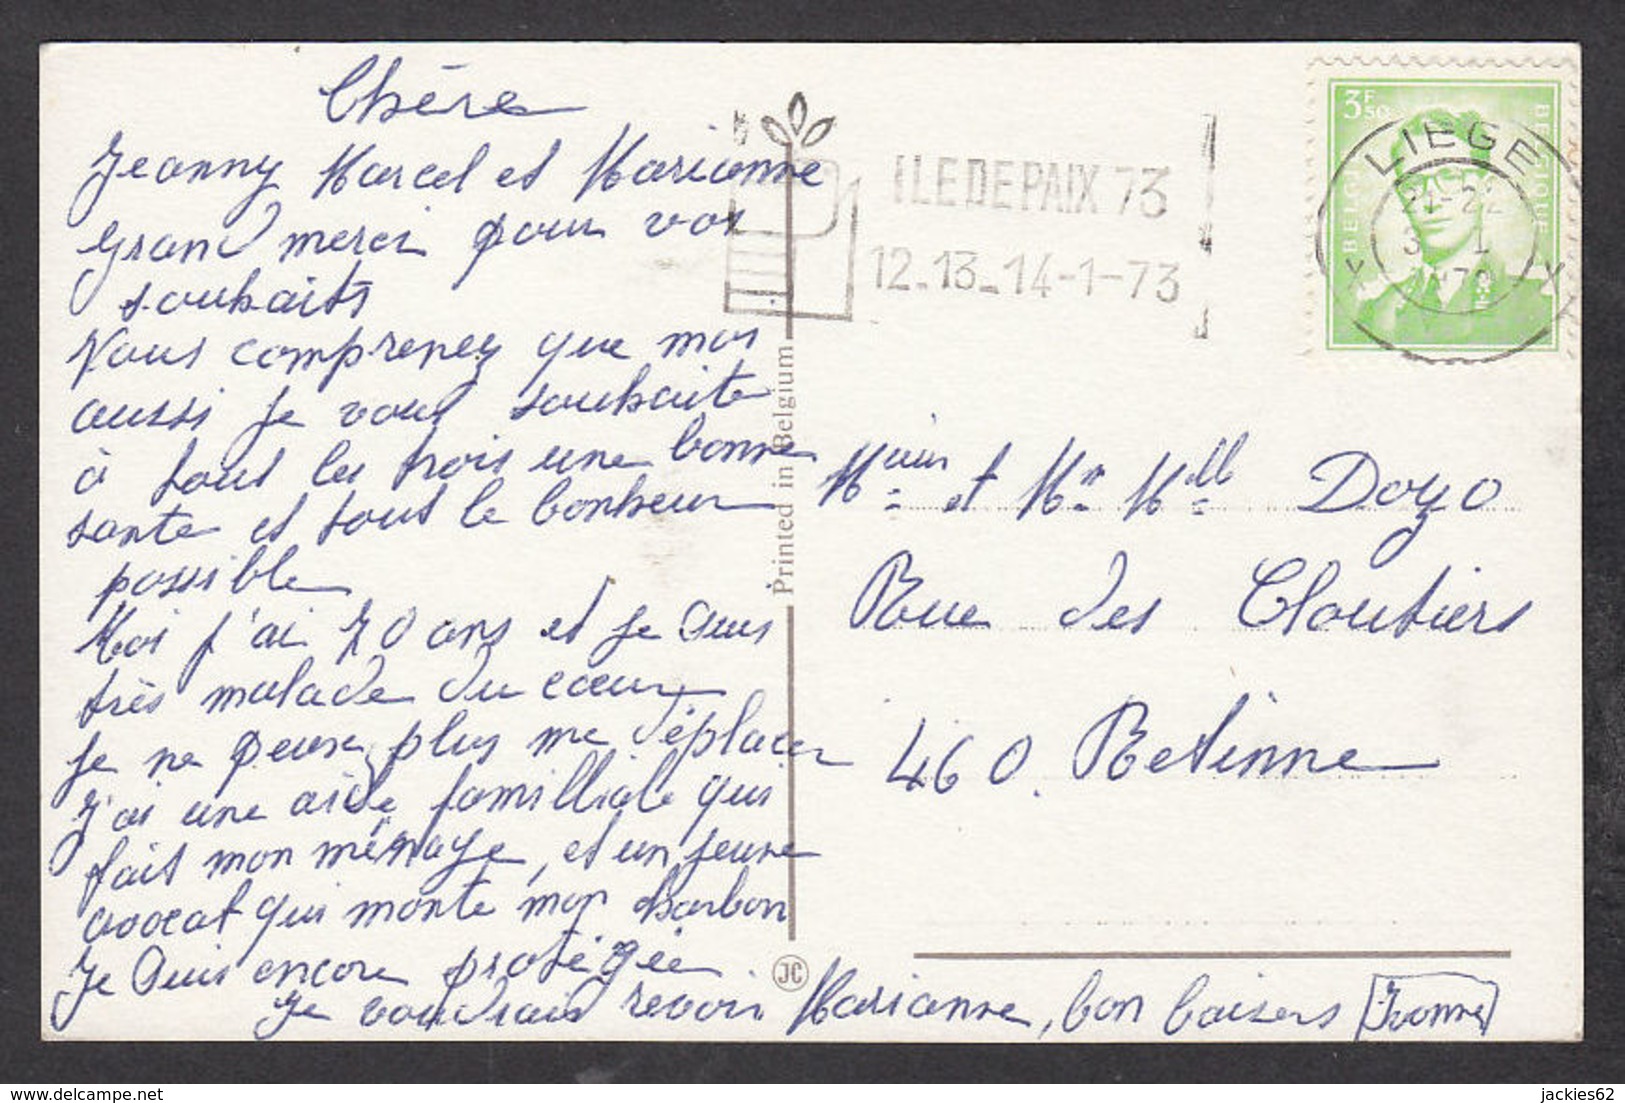 Chère
Jeanny Marcel et Marianne
grand merci pour vos
souhaits
Vous comprenez que moi
aussi je vous souhaite
à tous les trois une bonne
sante et tout le bonheur
possible
Moi j'ai 70 ans et je suis
très malade du cœur
je ne peux plus me déplacer
J'ai une aide familliale qui
fait mon ménage, et un jeune
avocat qui monte mon charbon
Je suis encore protégée
Je voudrais revoir Marianne, bon baisers Yvonne
Printed in Belgium
JC
ILE DE PAIX 73
12-13-14-1-73
3F50
BELGIE BELGIQUE
LIEGE X X
21-22
3 1
Mme et Mr Mlle Doyo
Rue des Cloutiers
460. Retinne
jackies62